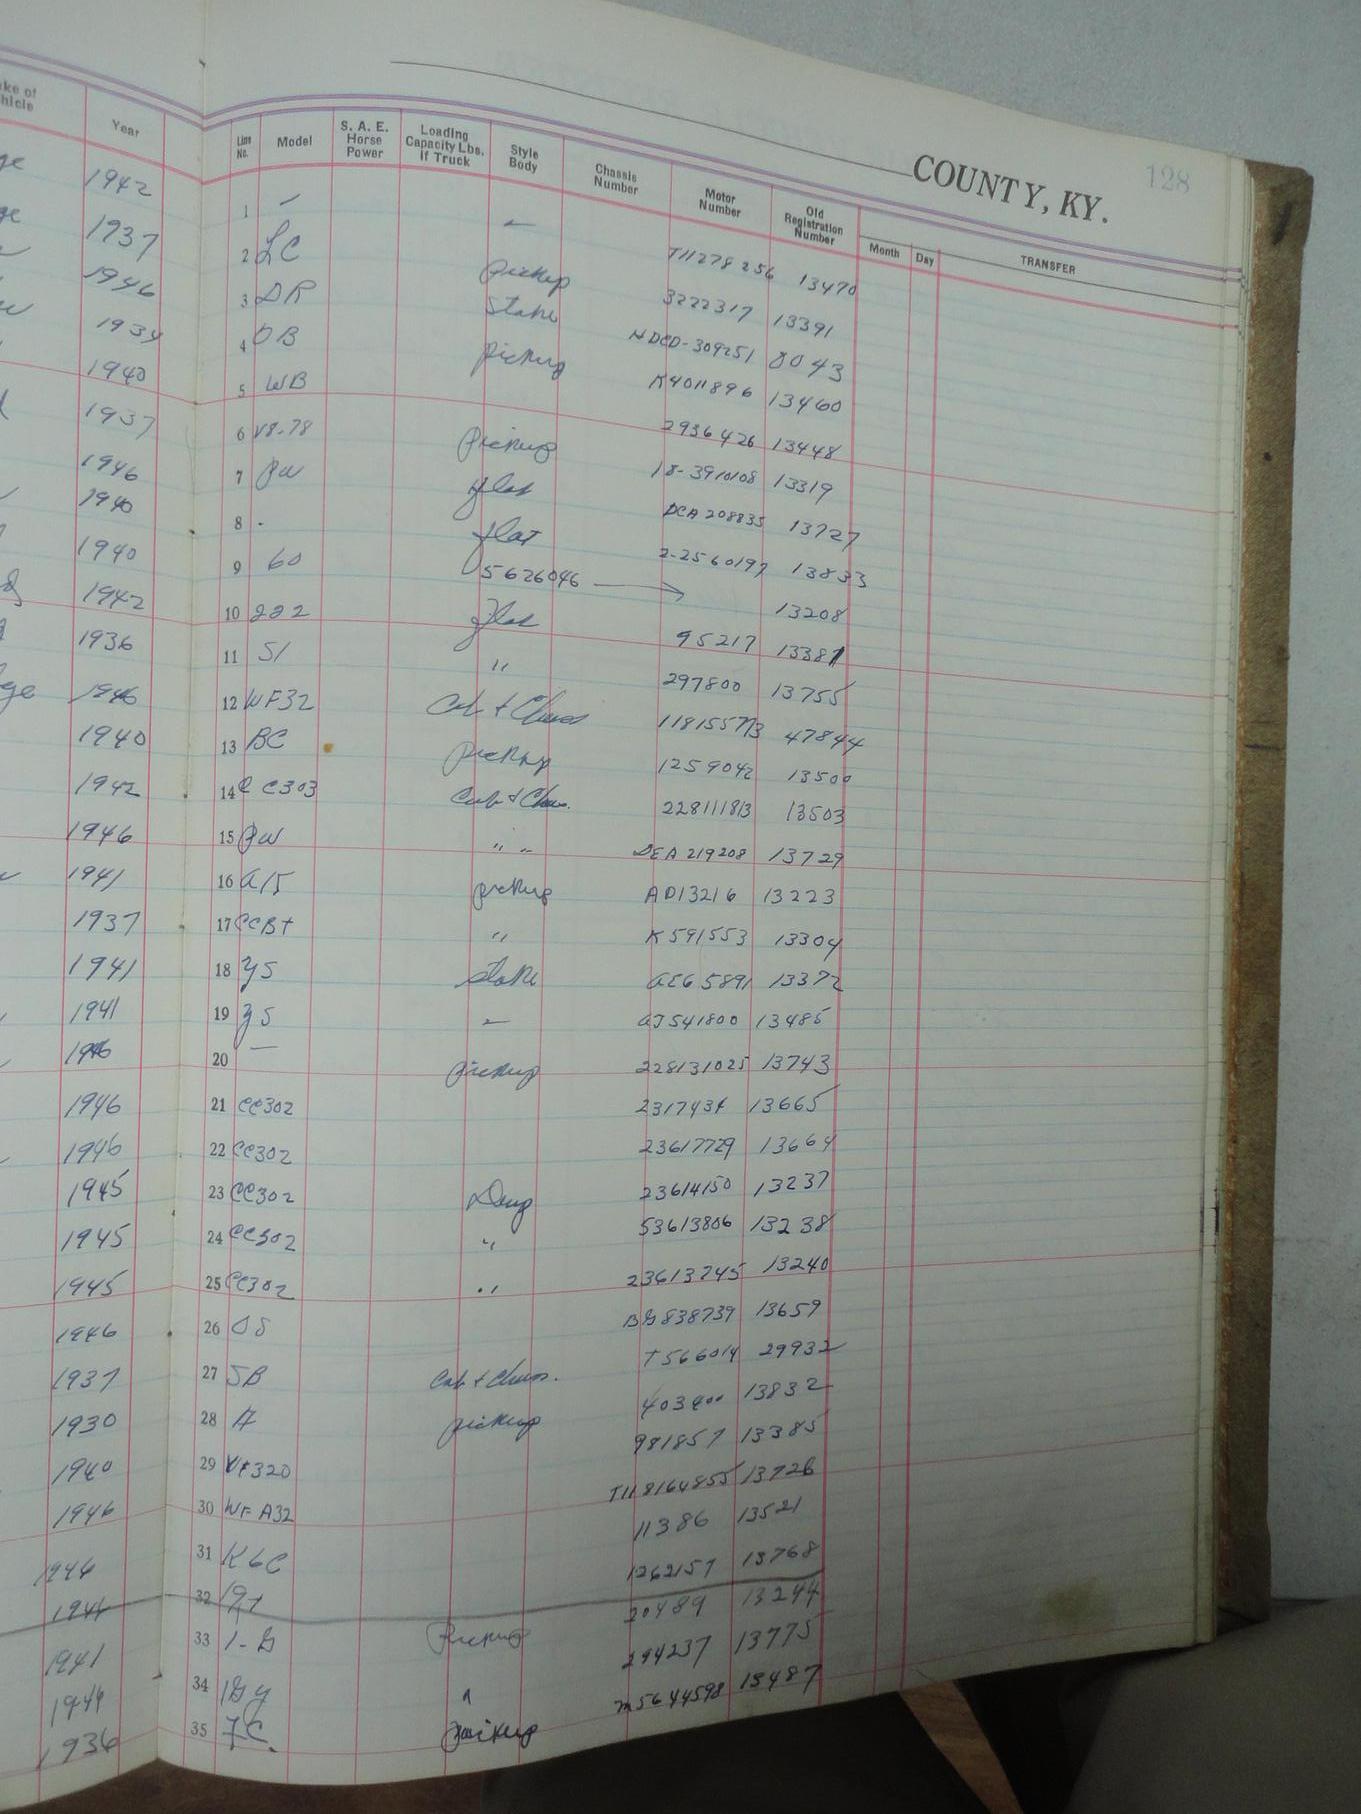 COUNTY, KY. 128
Year Line No. Model S. A. E. Horse Power Loading Capacity Lbs. If Truck Style Body Chassis Number Motor Number Old Registration Number Month Day TRANSFER
1942 1 — — T11278256 13470
1937 2 LC pickup 3222317 13391
1946 3 DR Stake 8043
1934 4 OB pickup K4011896 13460
1940 5 WB 2936426 13448
1937 6 V8-78 pickup 18-3910108 13319
1946 7 flat DCA 208835 13727
1940 8 - flat 2-2560197 13833
1940 9 60 5626046 13208
1942 10 222 flat 95217 13381
1936 11 51 " 297800 13755
1946 12 WF32 Cab + Chass 47844
1940 13 BC pickup 1259042 13500
1942 14 CC303 Cab + Chas. 228111813 13503
1946 15 " " DEA 219208 13729
1941 16 A15 pickup AD13216 13223
1937 17 CCB+ " K591553 13304
1941 18 YS stake 13372
1941 19 YS — AJ541800 13485
1946 20 — pickup 228131025 13743
1946 21 CC302 13665
1946 22 CC302 23617729 13664
1945 23 CC302 Dump 23614150 13237
1945 24 CC302 " 53613806 13238
1945 25 CC302 " 23613745 13240
1946 26 OS BG838739 13659
1937 27 SB Cab + Chass. T566014 29932
1930 28 A pickup 13832
1940 29 981857 13385
1946 30 WFA32 T118164855 13726
1946 31 K6C 11386 13521
32 1262157 13768
1941 33 1-G Pickup 20489 13244
34 " 294237 13775
1936 35 FC. pickup M5644598 13487